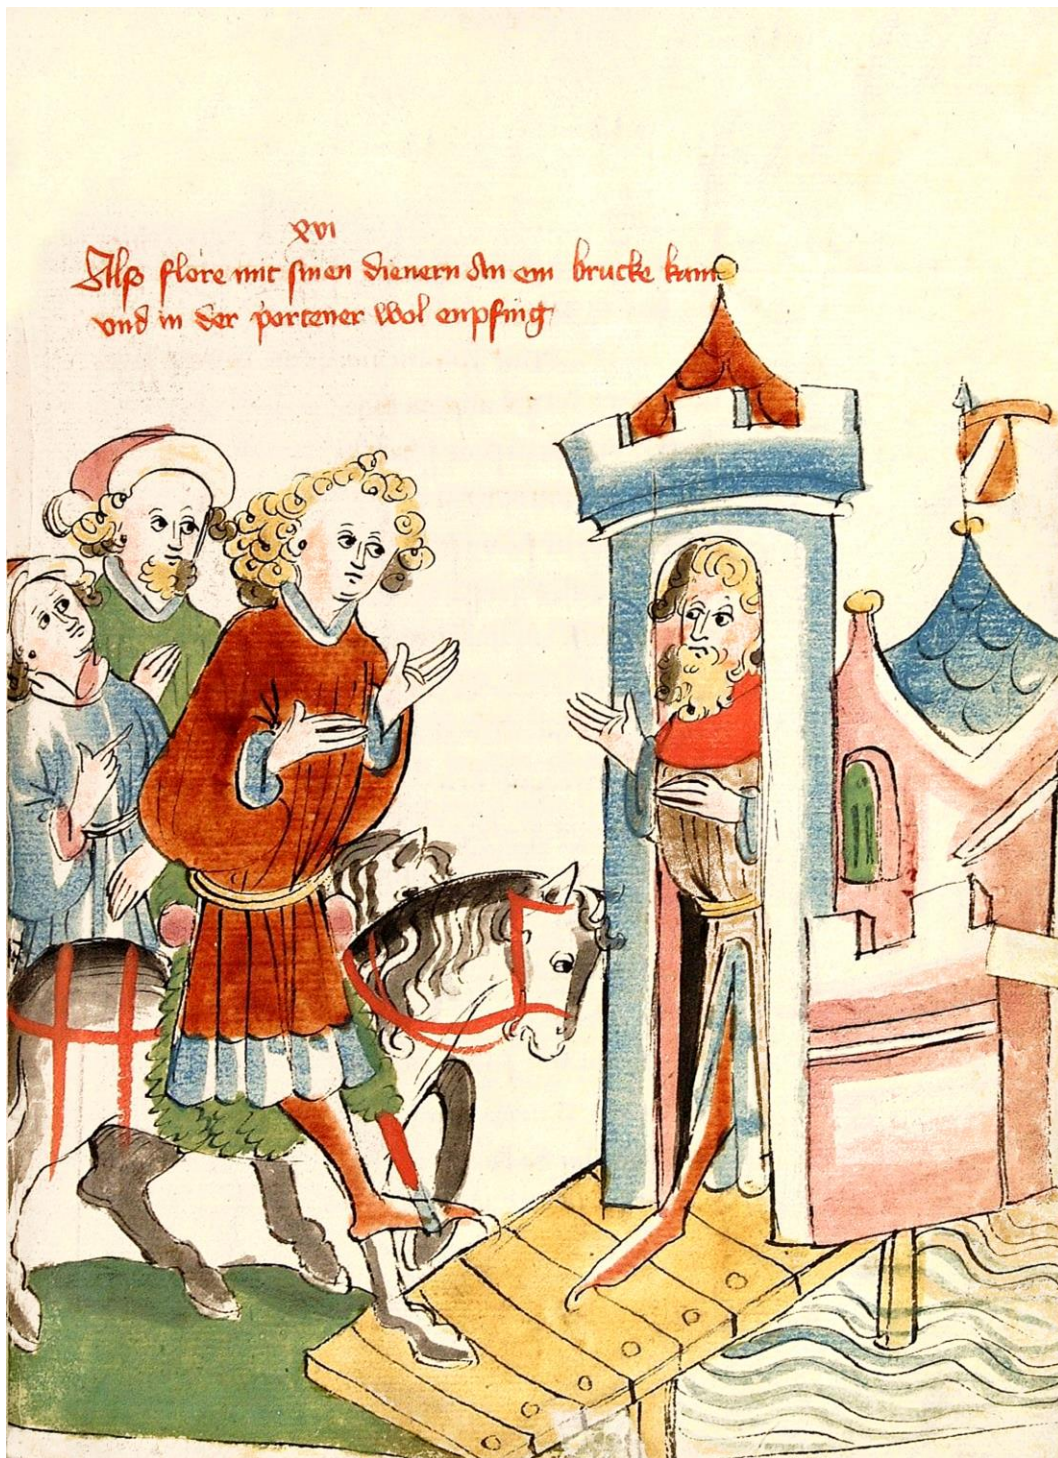 xvi
Alß flore mit sinen dienern An ein brucke kam
vnd in der portener wol enpfing